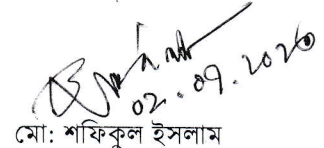 02.07.2020
মো: শফিকুল ইসলাম